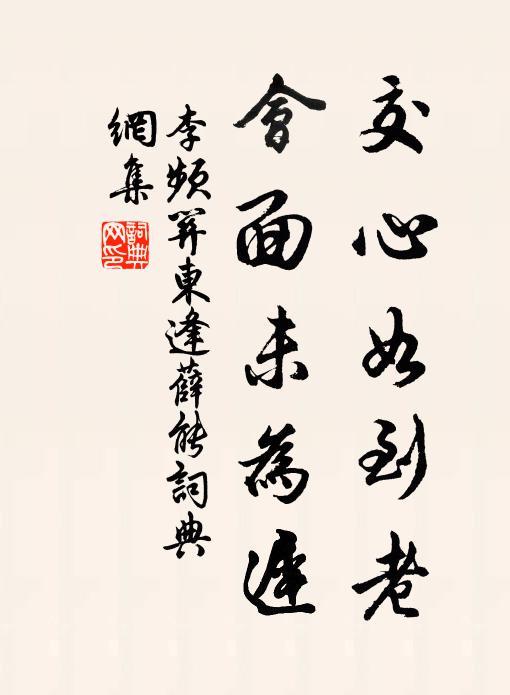 交心如到老
會面未為遲
李頻幷東逢薛能詞典
網集
詞典
网印